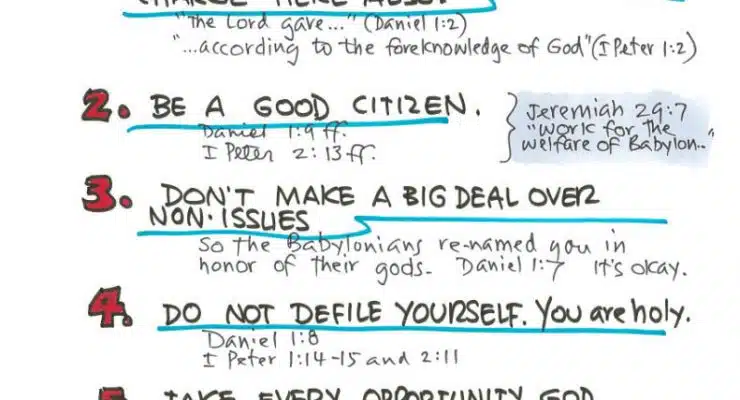 CHARGE HERE ALSO.
"The Lord gave..." (Daniel 1:2)
"...according to the foreknowledge of God" (I Peter 1:2)
2. BE A GOOD CITIZEN.
Daniel 1:9 ff.
I Peter 2:13 ff.
Jeremiah 29:7
"work for the
welfare of Babylon.."
3. DON'T MAKE A BIG DEAL OVER
NON-ISSUES
So the Babylonians re-named you in
honor of their gods- Daniel 1:7 It's okay.
4. DO NOT DEFILE YOURSELF. You are holy.
Daniel 1:8
I Peter 1:14-15 and 2:11
5. TAKE EVERY OPPORTUNITY GOD